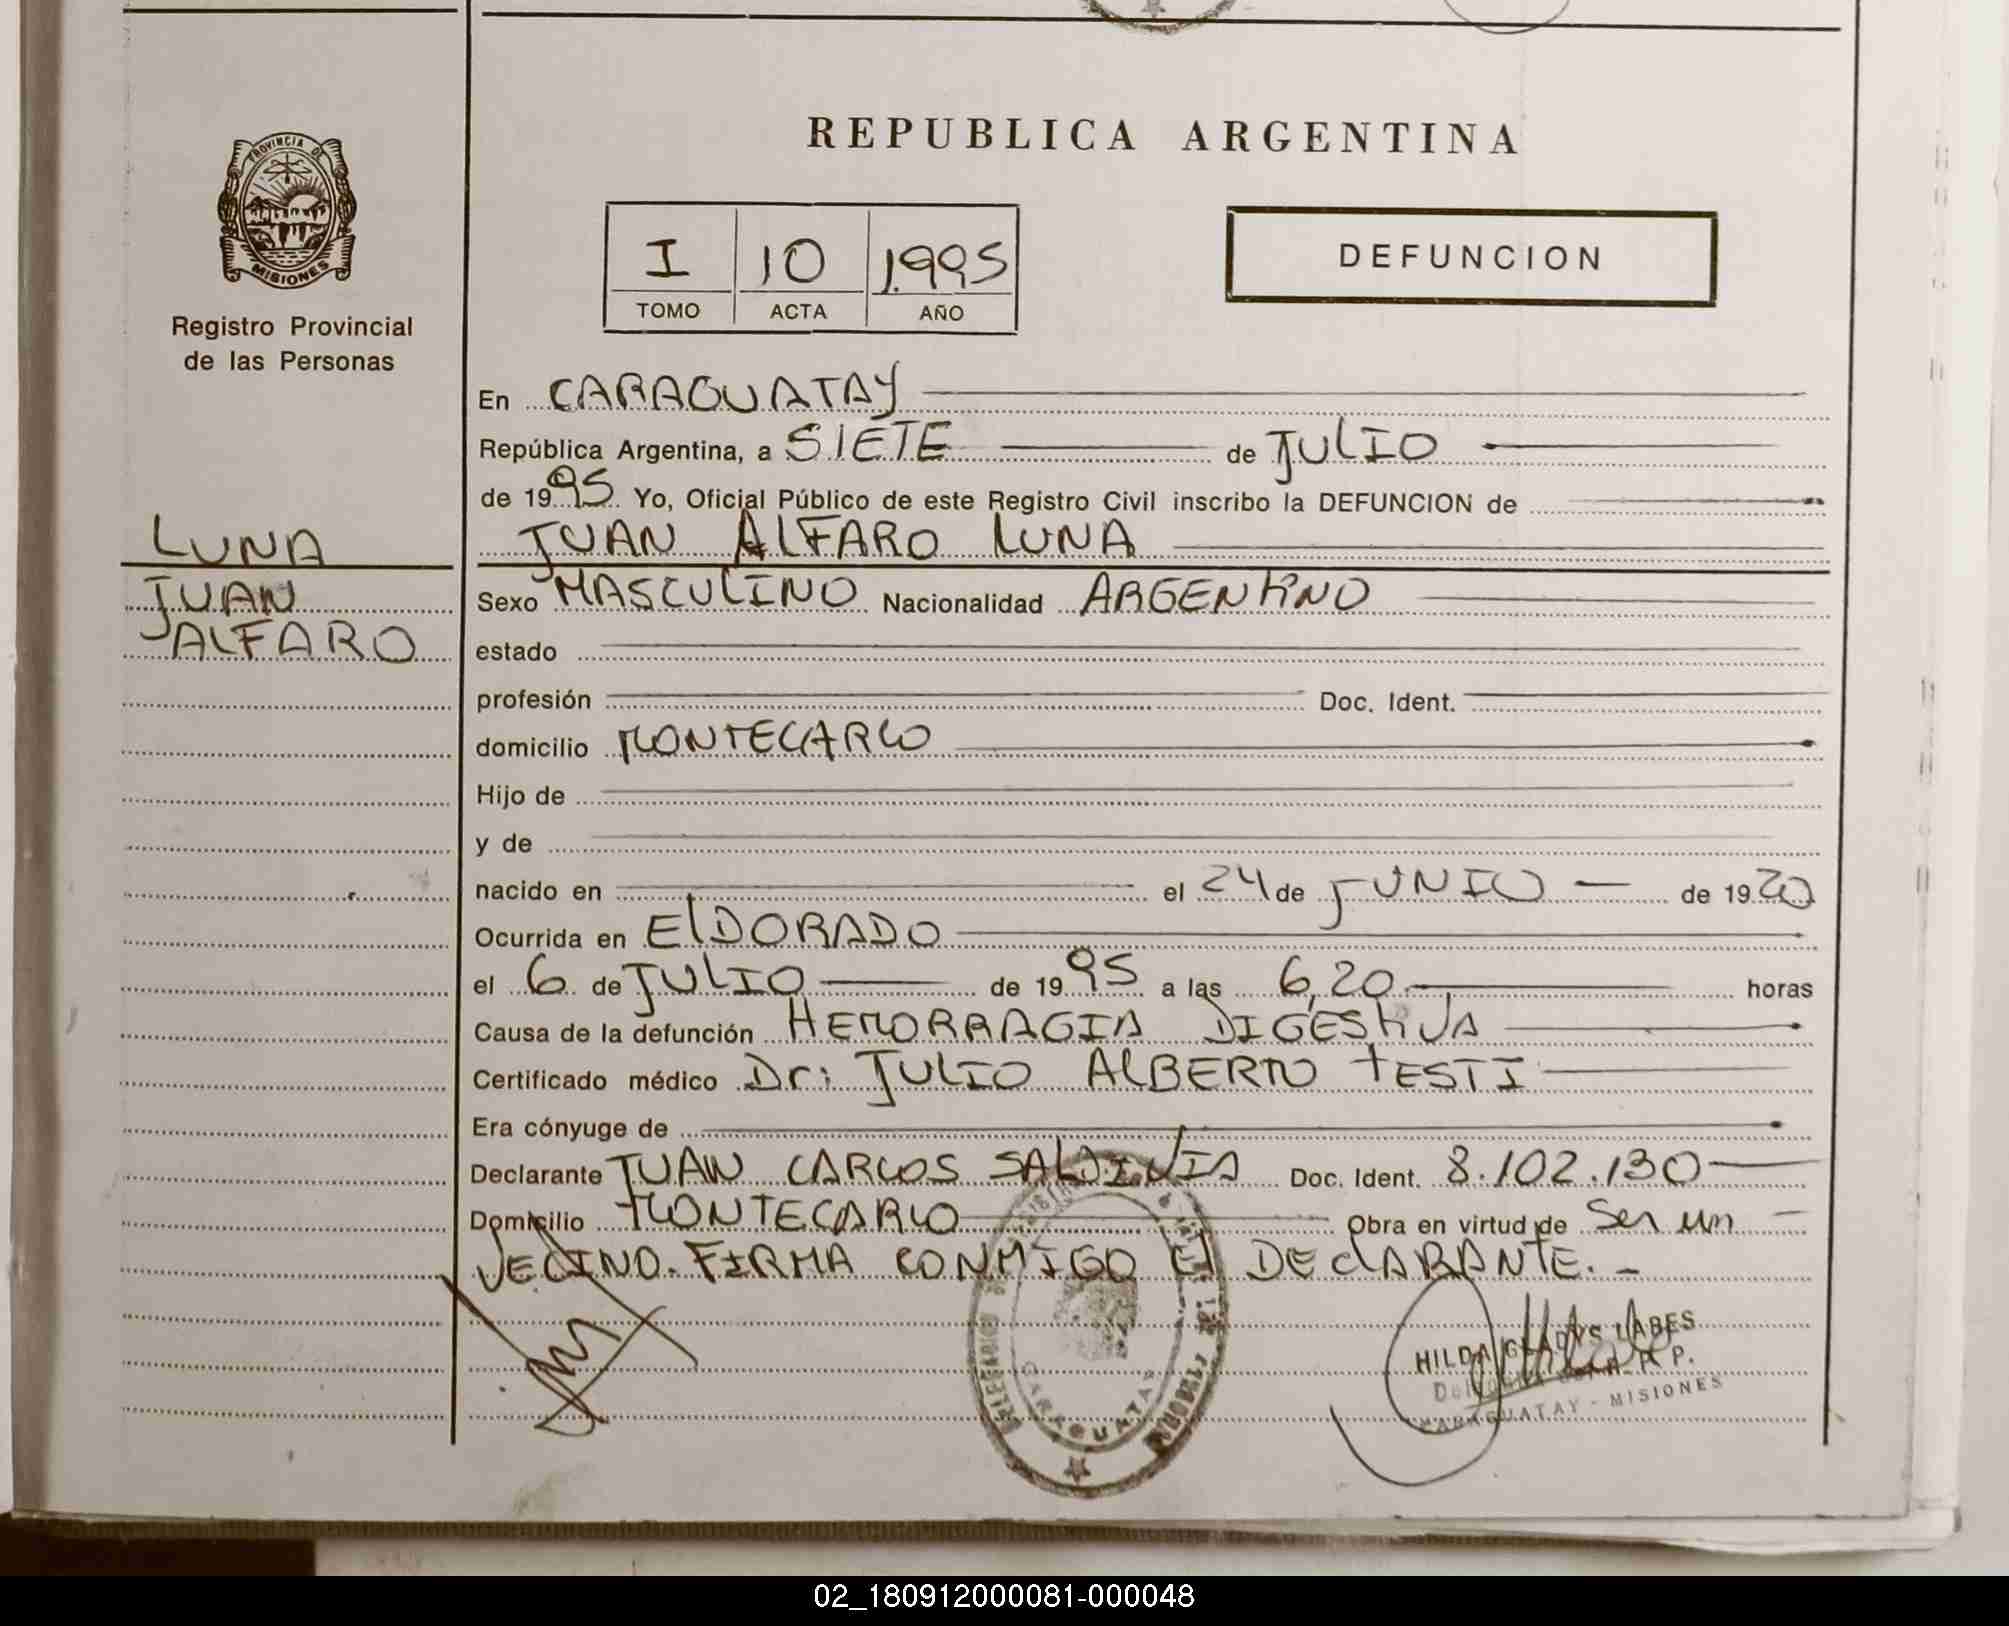 REPUBLICA ARGENTINA
PROVINCIA DE
MISIONES
Registro Provincial
de las Personas
I 10 1.995
TOMO ACTA AÑO
DEFUNCION
En CARAGUATAY
República Argentina, a SIETE de JULIO
de 1995. Yo, Oficial Público de este Registro Civil inscribo la DEFUNCION de
LUNA
JUAN ALFARO LUNA
JUAN
ALFARO
Sexo MASCULINO Nacionalidad ARGENTINO
estado
profesión Doc. Ident.
domicilio MONTECARLO
Hijo de
y de
nacido en el 24 de JUNIO de 1920
Ocurrida en ElDORADO
el 6 de JULIO de 1995 a las 6,20 horas
Causa de la defunción HEMORRAGIA DIGESTIVA
Certificado médico Dr: JULIO ALBERTO TESTI
Era cónyuge de
Declarante JUAN CARLOS SALDIVIA Doc. Ident. 8.102.130
Domicilio MONTECARLO Obra en virtud de Ser un
VECINO. FIRMA CONMIGO El DEClARANTE.
CARAGUATAY
HILDA GLADYS LABES
CARAGUATAY - MISIONES
02_180912000081-000048